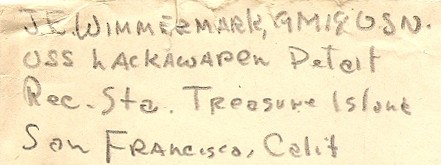 J.E. WIMMERMARK, GM1g USN.
USS LACKAWAPEN Detait
Rec. Sta. Treasure Island
San FRANCISCO, Calif